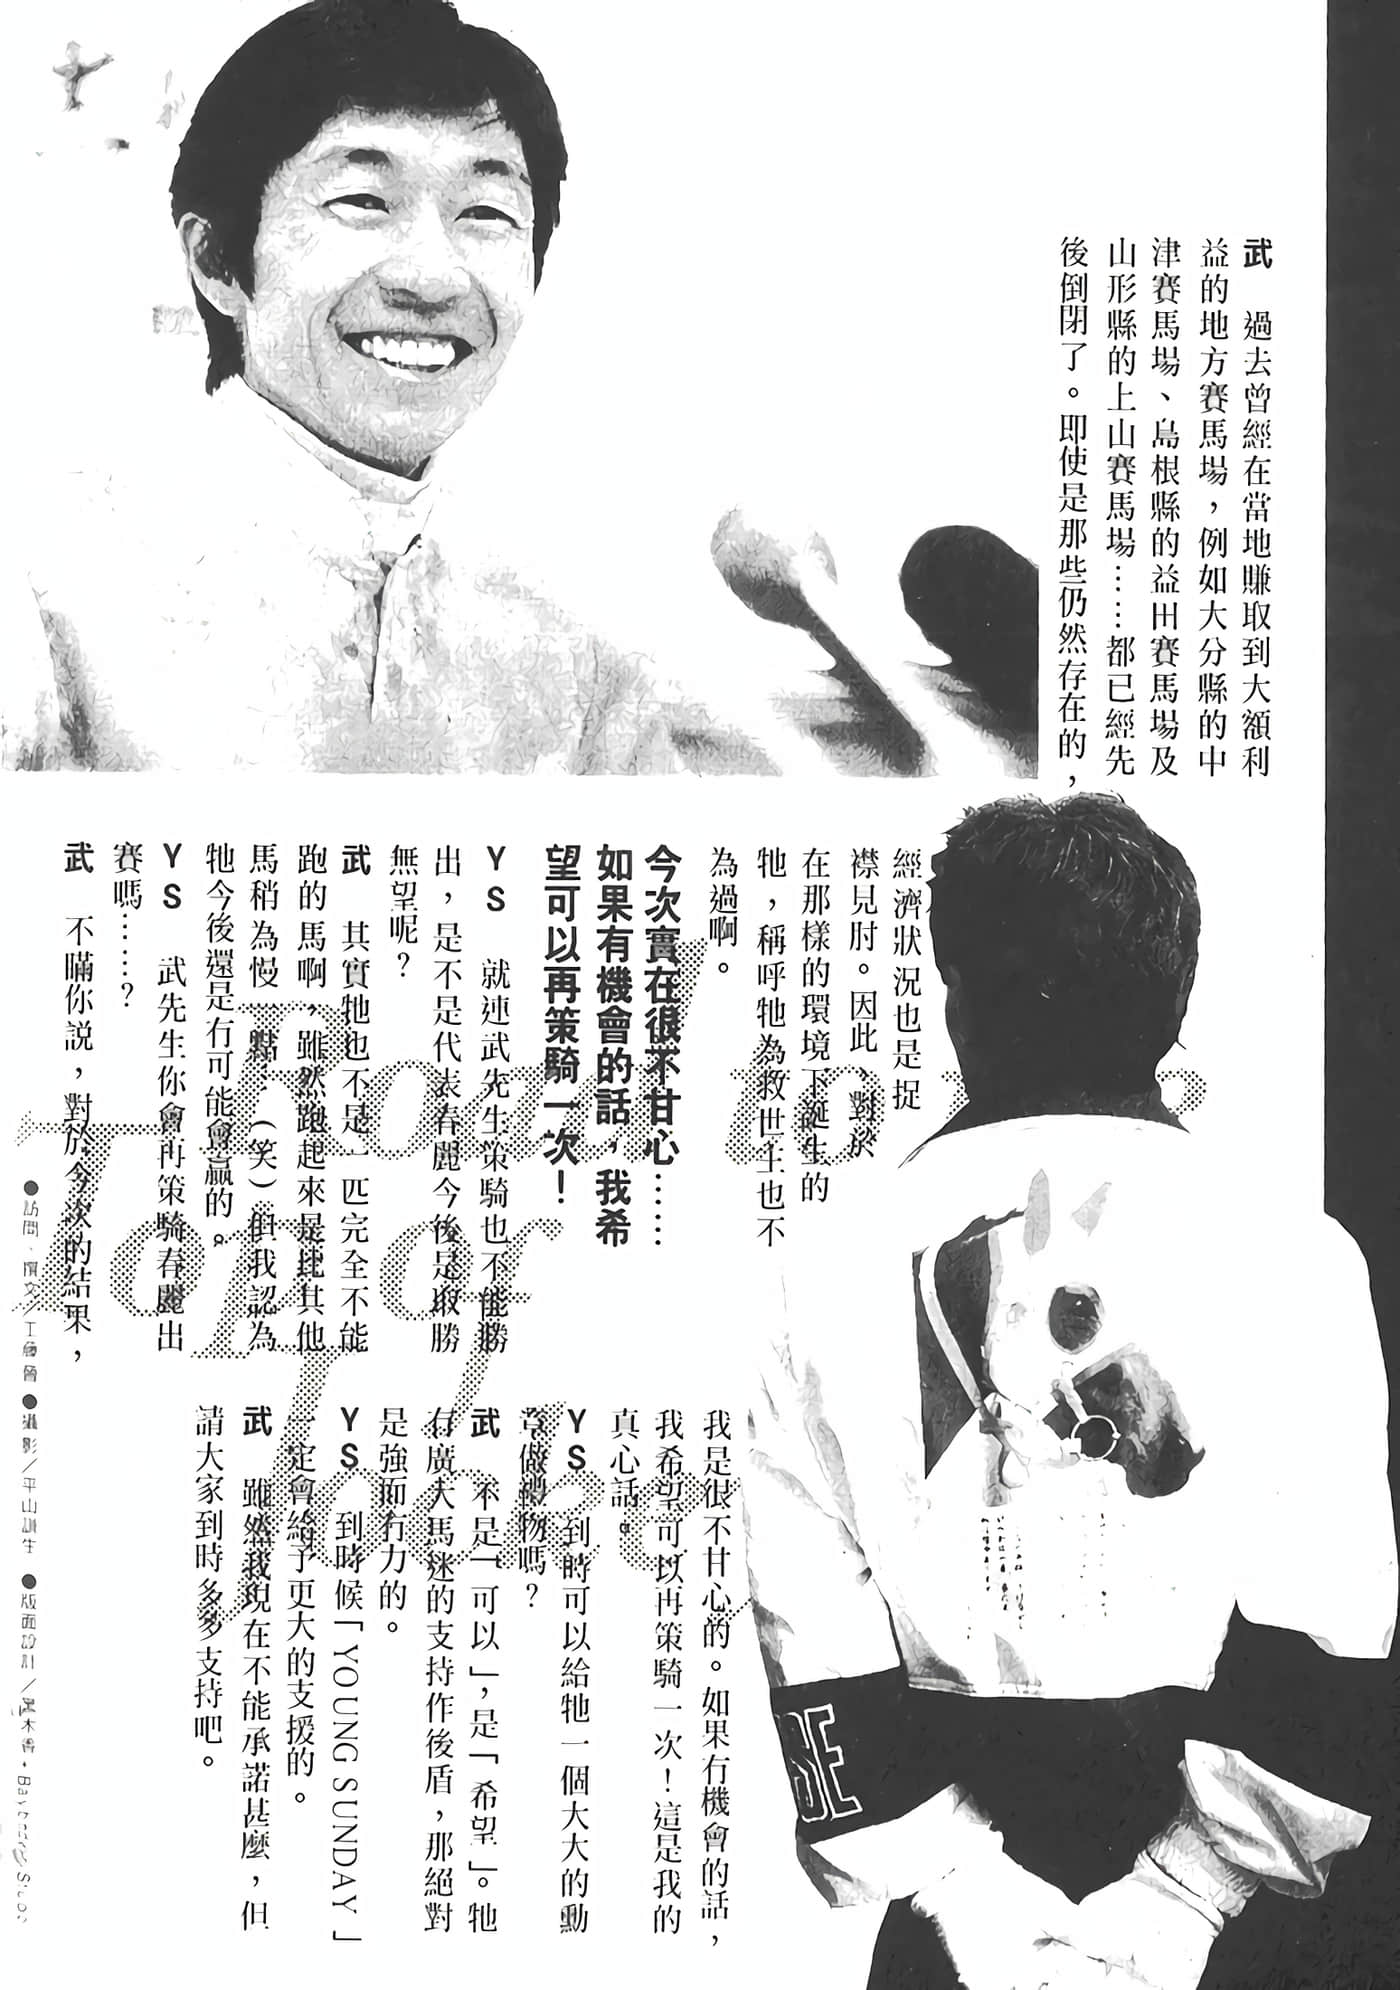 武　過去曾經在當地賺取到大額利
益的地方賽馬場，例如大分縣的中
津賽馬場、島根縣的益田賽馬場及
山形縣的上山賽馬場……都已經先
後倒閉了。即使是那些仍然存在的，
經濟狀況也是捉
襟見肘。因此、對於
在那樣的環境下誕生的
牠，稱呼牠為救世主也不
為過啊。
今次實在很不甘心……
如果有機會的話，我希
望可以再策騎一次！
YS　就連武先生策騎也不能勝
出，是不是代表春麗今後是取勝
無望呢？
武　其實牠也不是一匹完全不能
跑的馬啊，雖然跑起來是比其他
馬稍為慢一點…（笑）但我認為
牠今後還是有可能會贏的。
YS　武先生你會再策騎春麗出
賽嗎……？
武　不瞞你說，對於今次的結果，
我是很不甘心的。如果有機會的話，
我希望可以再策騎一次！這是我的
真心話。
YS　到時可以給牠一個大大的勳
章做禮物嗎？
武　不是「可以」，是「希望」。牠
有廣大馬迷的支持作後盾，那絕對
是強而有力的。
YS　到時候「YOUNG SUNDAY」
一定會給予更大的支援的。
武　雖然我現在不能承諾甚麼，但
請大家到時多多支持吧。
Road to the
Top of
●訪問、撰文／工藤晉 ●攝影／平山訓生 ●版面設計／黑木香＋Bay Bridge Studio